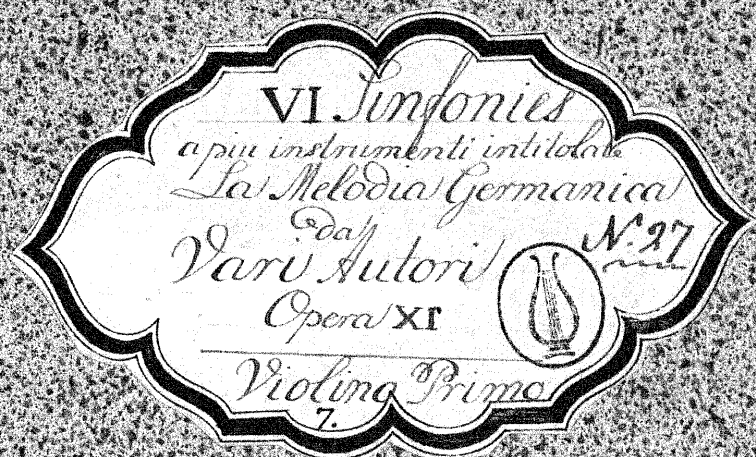 VI Sinfonies
a piu instrumenti intitolate
La Melodia Germanica
da
Vari Autori
N.º 27
Opera XI
Violino Primo
7.